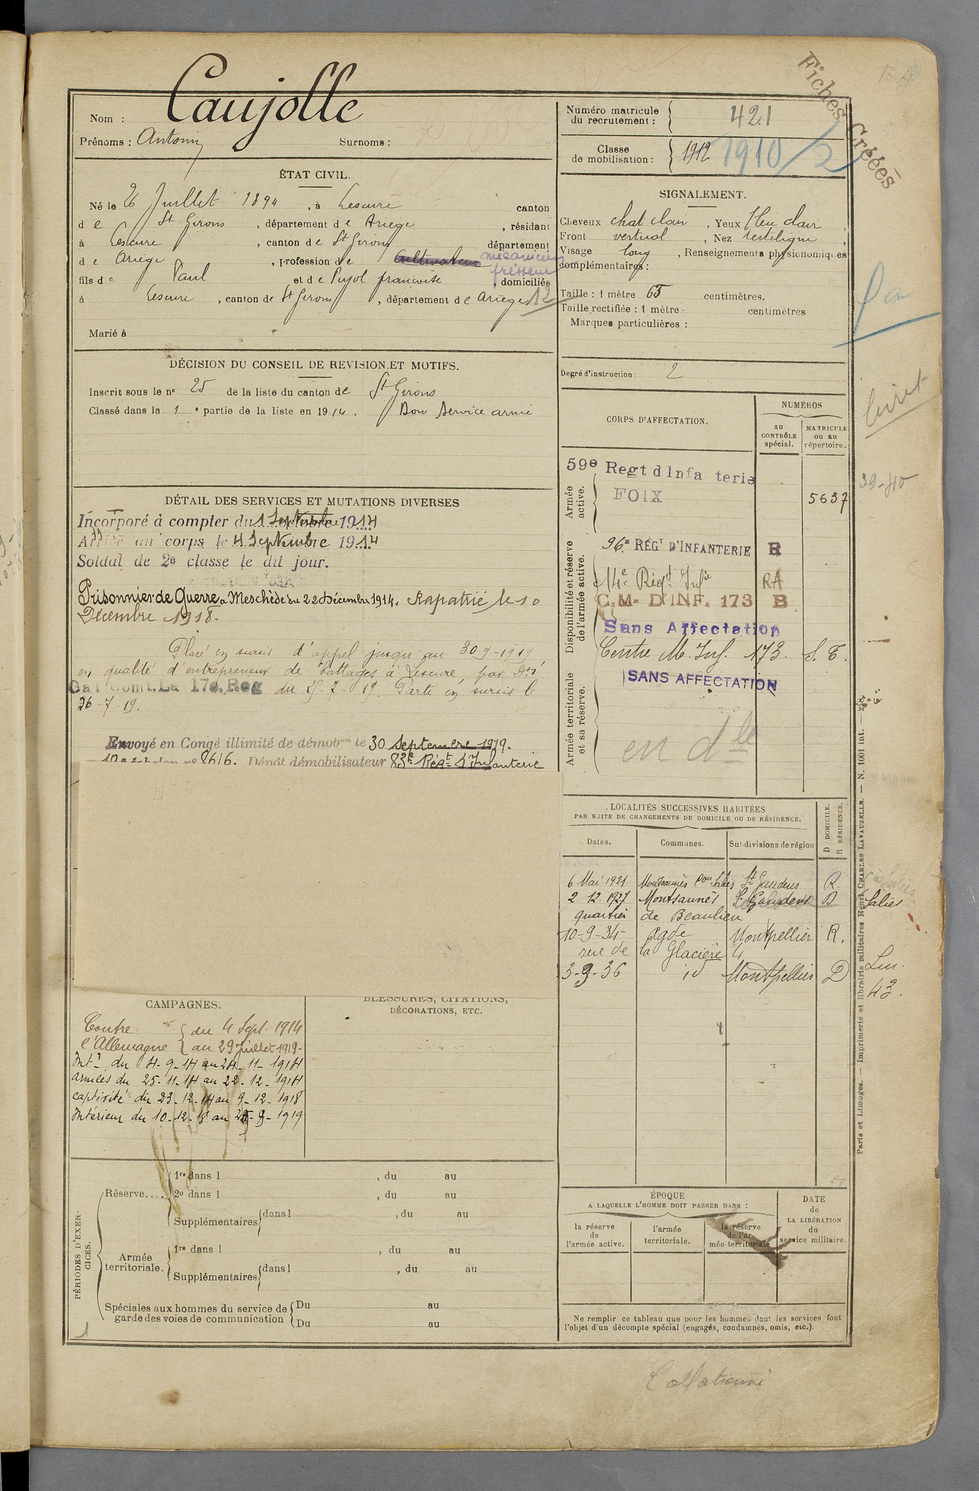 Fiches Créées
Nom : Caujolle
Prénoms : Antonin Surnoms :
ÉTAT CIVIL.
Né le 26 Juillet 1894, à Lescure canton
de St Girons, département de Ariège, résidant
à Lescure, canton de St Girons département
de Ariège, profession de cultivateur mécanicien
fils de Paul et de Pujol françoise domiciliés
à Lescure, canton de St Girons, département de Ariège
Marié à
DÉCISION DU CONSEIL DE REVISION ET MOTIFS.
Inscrit sous le no 25 de la liste du canton de St Girons
Classé dans la 1e partie de la liste en 1914. Bon Service armé
DÉTAIL DES SERVICES ET MUTATIONS DIVERSES
Incorporé à compter du 1 Septembre 1914
Arrivé au corps le 4 Septembre 1914
Soldat de 2e classe le dit jour.
Prisonnier de Guerre. Meschède du 22 Décembre 1914. Rapatrié le 10
Décembre 1918.
Placé en sursis d'appel jusqu'au 30-9-1919
en qualité d'entrepreneur de battages à Lescure, par Don
Gal Comt. La 17e. Reg du 2-19. Parti en sursis le
26-7-19.
Envoyé en Congé illimité de démobon le 30 Septembre 1919.
8616. Dépôt démobilisateur 83e Régt d'Infanterie
CAMPAGNES.
Contre l'Allemagne du 4 Sept. 1914
au 29 Juillet 1919
Intr du 4-9-14 au 24-11-1914
Armées du 25-11-14 au 22-12-1914
captivité du 23-12-14 au 9-12-1918
Intérieur du 10-12-18 au 1919
BLESSURES, CITATIONS,
DÉCORATIONS, ETC.
PÉRIODES D'EXERCICES.
Réserve....
1re dans l , du au
2e dans l , du au
Supplémentaires dans l , du au
Armée territoriale.
1re dans l , du au
Supplémentaires dans l , du au
Spéciales aux hommes du service de
garde des voies de communication
Du au
Du au
Numéro matricule
du recrutement : 421
Classe
de mobilisation : 1912 1910/2
SIGNALEMENT.
Cheveux chat clair, Yeux bleu clair
Front vertical, Nez rectiligne
Visage long, Renseignements physionomiques
complémentaires :
Taille : 1 mètre 65 centimètres.
Taille rectifiée : 1 mètre centimètres
Marques particulières :
Degré d'instruction : 2
CORPS D'AFFECTATION.
NUMÉROS
au
CONTRÔLE
spécial.
MATRICULE
ou au
répertoire.
Armée
active.
59e Regt d Infa terie
FOIX 5637
Disponibilité et réserve
de l'armée active.
96e RÉGt D'INFANTERIE R
14e Régt Infie RA
C. M. D'INF. 173 B
Sans Affectation
Centre M. Inf. 173. S. T.
Armée territoriale
et sa réserve.
SANS AFFECTATION
en dlle
39-40
LOCALITÉS SUCCESSIVES HABITÉES
PAR SUITE DE CHANGEMENTS DE DOMICILE OU DE RÉSIDENCE.
Dates. Communes. Subdivisions de région D DOMICILE. R RÉSIDENCE.
6 Mai 1921 Montsaunès par Salies St Gaudens R.
2 12 1927 Montsaunès St Gaudens D Salies
quartier de Beaulieu
10-9-34 Agde Montpellier R.
rue de la Glacière 4
3-9-36 id Montpellier D
43.
ÉPOQUE
A LAQUELLE L'HOMME DOIT PASSER DANS :
la réserve
de
l'armée active.
l'armée
territoriale.
la réserve
de l'ar-
mée territoriale
DATE
de
LA LIBÉRATION
du
service militaire.
Ne remplir ce tableau que pour les hommes dont les services font
l'objet d'un décompte spécial (engagés, condamnés, omis, etc.).
Collationné
Paris et Limoges. — Imprimerie et librairie militaires Henri CHARLES-LAVAUZELLE. — N. 1001 int.